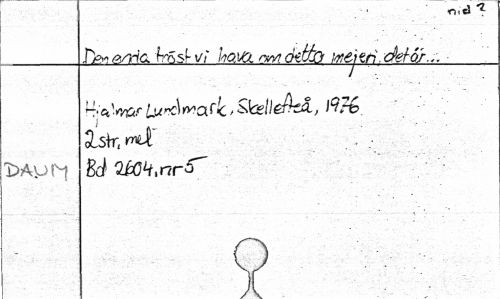 nid?
Den enda tröst vi hava om detta mejeri, det är...
Hjalmar Lundmark, Skellefteå, 1976
2 str, mel
DAUM Bd 2604, nr 5